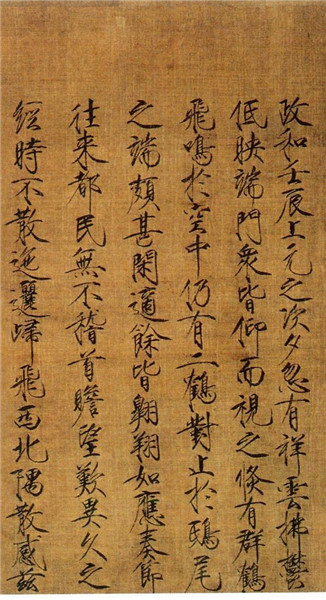 政和壬辰上元之次夕忽有祥雲拂鬱
低映端門衆皆仰而視之倏有群鶴
飛鳴於空中仍有二鶴對止於鴟尾
之端頗甚閑適餘皆翺翔如應奏節
往来都民無不稽首瞻望歎異久之
經時不散迤邐歸飛西北隅散感茲